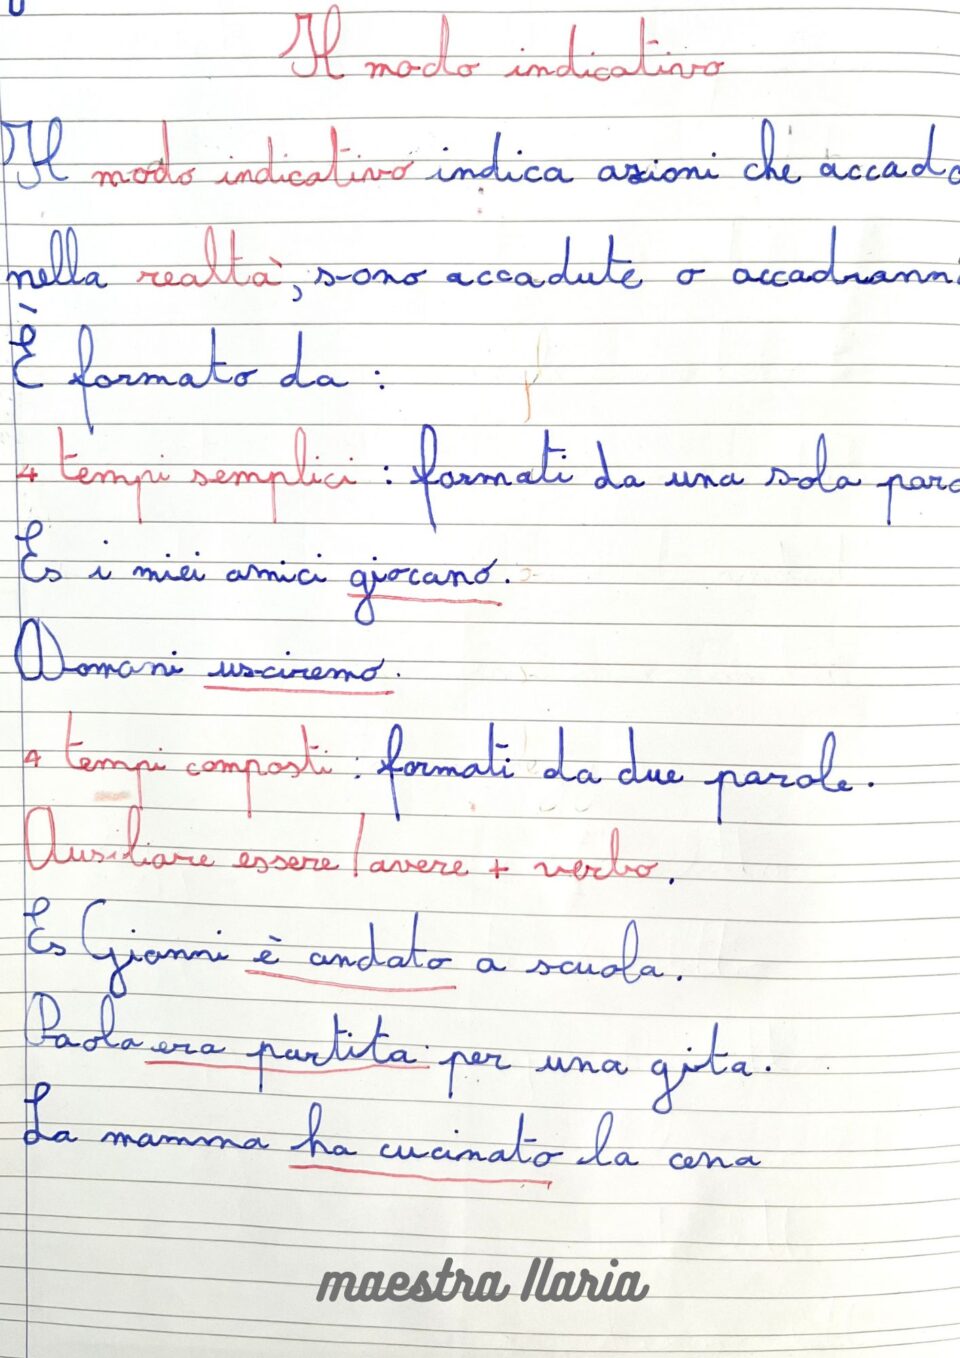 Il modo indicativo
Il modo indicativo indica azioni che accado
nella realtà, sono accadute o accadrann
È formato da :
4 tempi semplici : formati da una sola paro
Es i miei amici giocano.
Domani usciremo.
4 tempi composti : formati da due parole.
Ausiliare essere / avere + verbo.
Es Gianni è andato a scuola.
Paola era partita per una gita.
La mamma ha cucinato la cena
maestra Ilaria